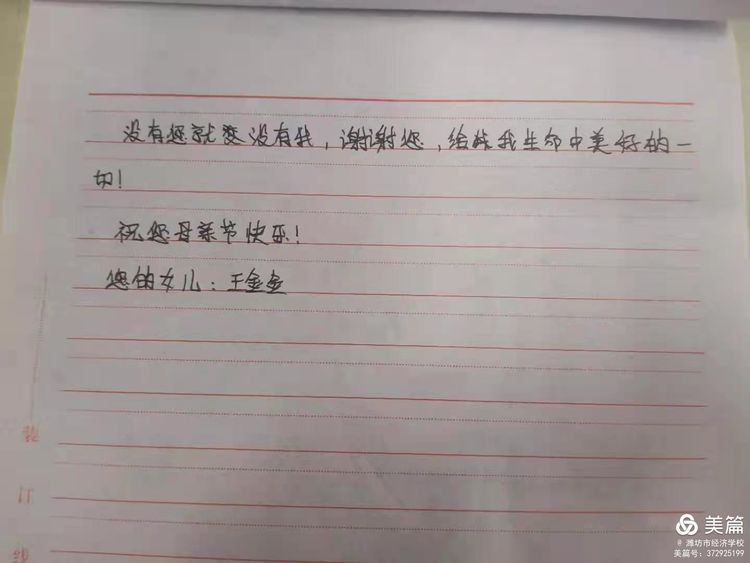 没有您就没有我，谢谢您，给我生命中美好的一
切！
祝您母亲节快乐！
您的女儿：王金金
装
订
线
美篇
@ 潍坊市经济学校
美篇号：372925199